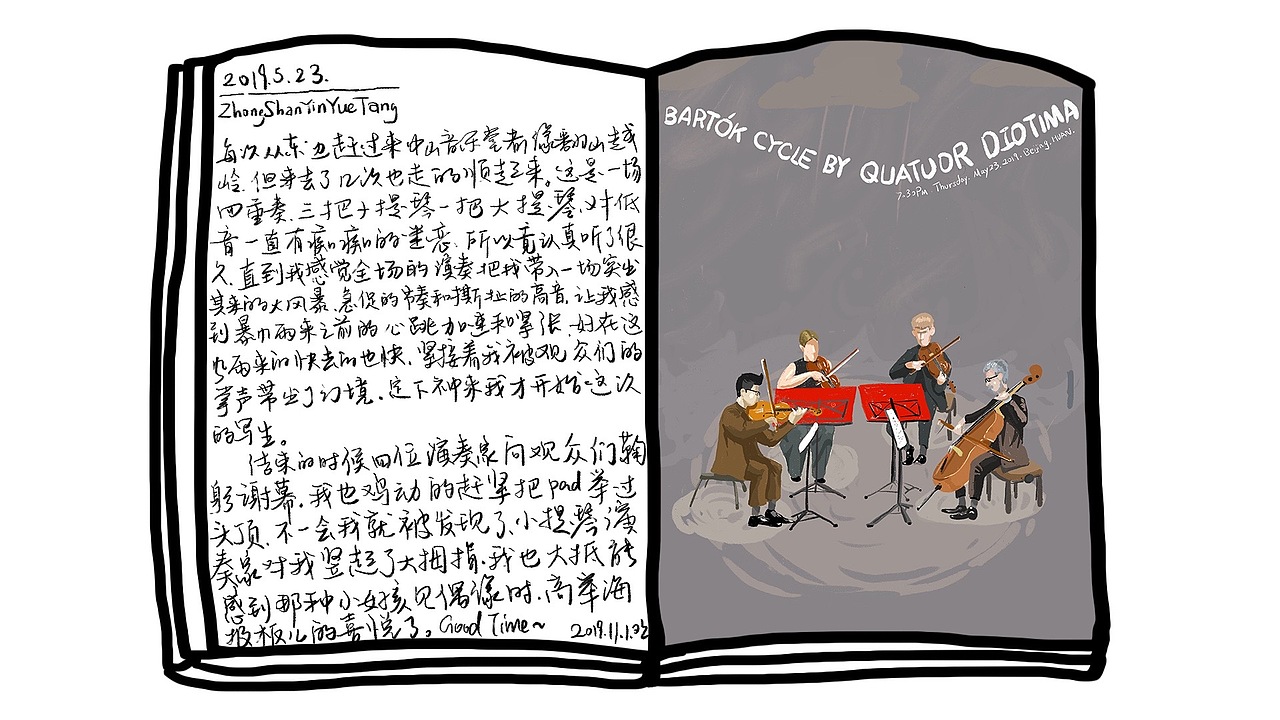 2019.5.23.
ZhongShanYinYueTang
每次从东边赶过来中山音乐堂都像翻山越
岭，但来去了几次也走的顺起来。这是一场
四重奏，三把小提琴一把大提琴，对低
音一直有痴痴的迷恋，所以竟认真听了很
久，直到我感觉全场的演奏把我带入一场突出
其来的大风暴，急促的节奏和撕扯的高音，让我感
到暴风雨来之前的心跳加速和紧张，好在这
风雨来的快去的也快，紧接着我被观众们的
掌声带出了幻境，定下神来我才开始这次
的写生。
结束的时候四位演奏家向观众们鞠
躬谢幕，我也鸡动的赶紧把pad举过
头顶，不一会我就被发现了，小提琴演
奏家对我竖起了大拇指，我也大抵能
感到那种小女孩见偶像时，高举海
报板儿的喜悦了。Good Time~ 2019.11.1
BARTÓK CYCLE BY QUATUOR DIOTIMA
7:30PM Thursday. May 23. 2019. Beijing. HUAN.